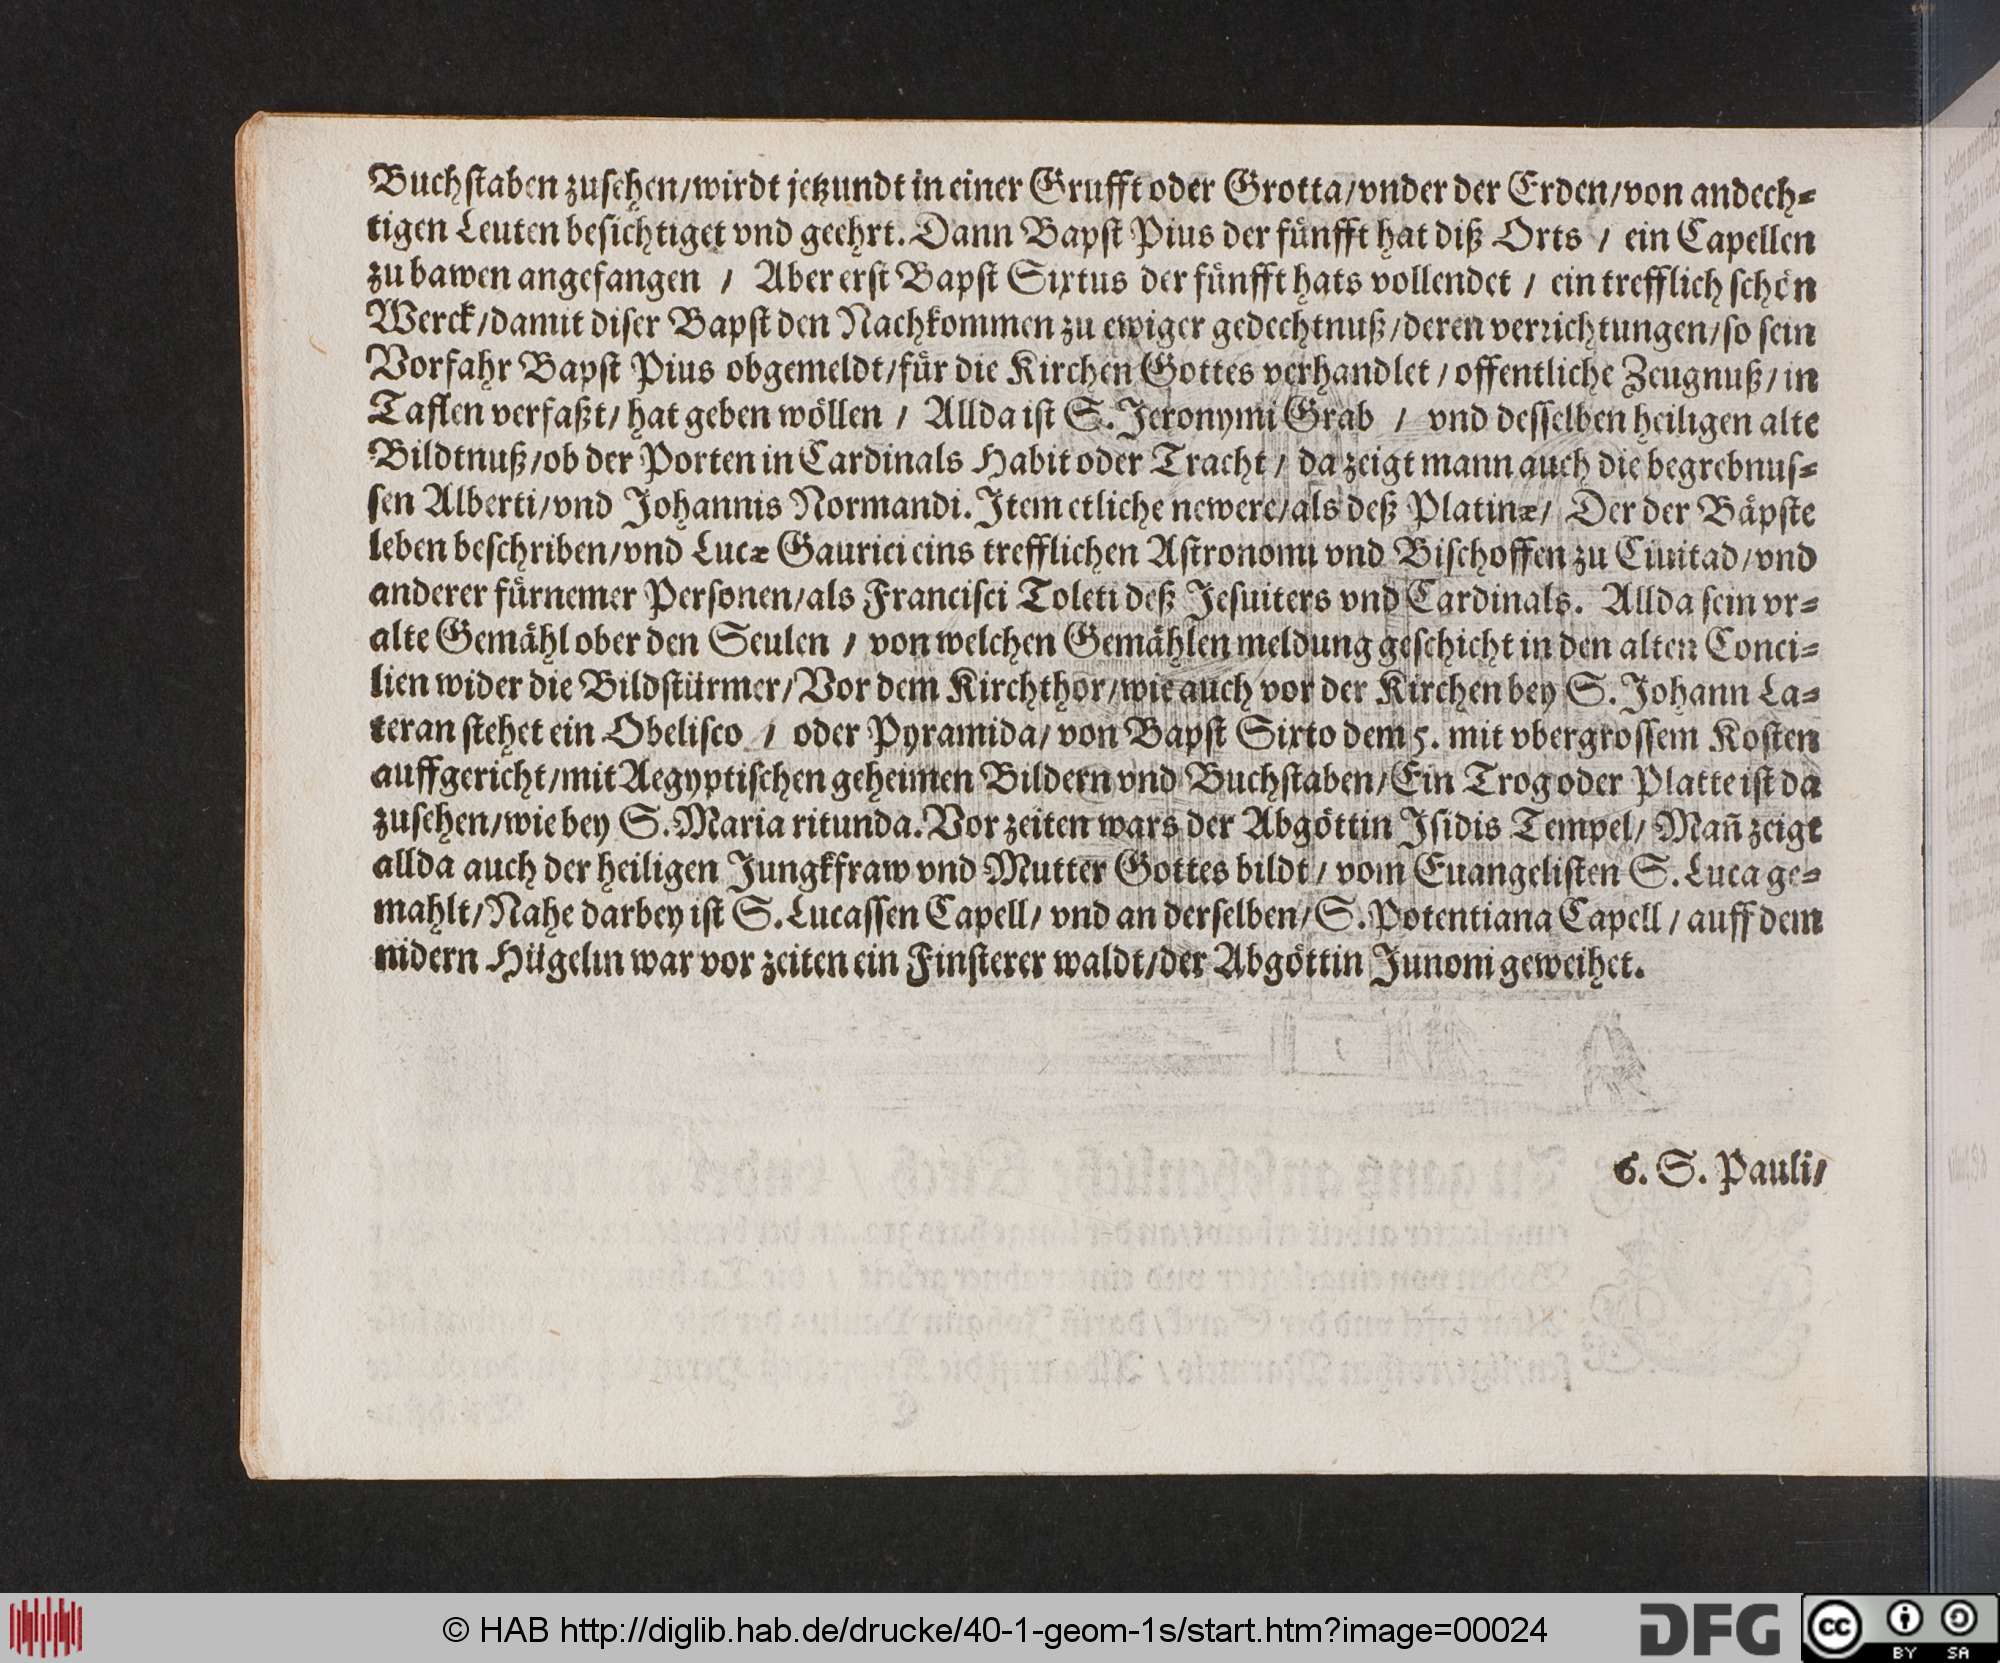 Buchſtaben zuſehen/wirdt jetzundt in einer Grufft oder Grotta/vnder der Erden/von andech-
tigen Leuten beſichtiget vnd geehrt. Dann Bapſt Pius der fünfft hat diß Orts / ein Capellen
zu bawen angefangen / Aber erſt Bapſt Sixtus der fünfft hats vollendet / ein trefflich ſchön
Werck/damit diſer Bapſt den Nachkommen zu ewiger gedechtnuß/deren verrichtungen/ſo ſein
Vorfahr Bapſt Pius obgemeldt/für die Kirchen Gottes verhandlet/offentliche Zeugnuß/in
Taflen verfaßt/hat geben wöllen / Allda iſt S. Jeronymi Grab / vnd deſſelben heiligen alte
Bildtnuß/ob der Porten in Cardinals Habit oder Tracht/ da zeigt mann auch die begrebnuſ-
ſen Alberti/vnd Johannis Normandi. Item etliche newere/als deß Platinæ/ Der der Bäpſte
leben beſchriben/vnd Lucæ Gaurici eins trefflichen Aſtronomi vnd Biſchoffen zu Ciuitad/vnd
anderer fürnemer Perſonen/als Franciſci Toleti deß Jeſuiters vnd Cardinals. Allda ſein vr-
alte Gemähl ober den Seulen / von welchen Gemählen meldung geſchicht in den alten Conci-
lien wider die Bildſtürmer/Vor dem Kirchthor/wie auch vor der Kirchen bey S. Johann La-
teran ſtehet ein Obeliſco / oder Pyramida/ von Bapſt Sixto dem 5. mit vbergroſſem Koſten
auffgericht/mit Aegyptiſchen geheimen Bildern vnd Buchſtaben/Ein Trog oder Platte iſt da
zuſehen/wie bey S. Maria ritunda. Vor zeiten wars der Abgöttin Iſidis Tempel/ Mañ zeigt
allda auch der heiligen Jungkfraw vnd Mutter Gottes bildt/ vom Euangeliſten S. Luca ge-
mahlt/Nahe darbey iſt S. Lucaſſen Capell/ vnd an derſelben/S. Potentiana Capell/ auff dem
nidern Hügelin war vor zeiten ein Finſterer waldt/der Abgöttin Junoni geweihet.
6. S. Pauli/
© HAB http://diglib.hab.de/drucke/40-1-geom-1s/start.htm?image=00024
DFG
cc BY SA